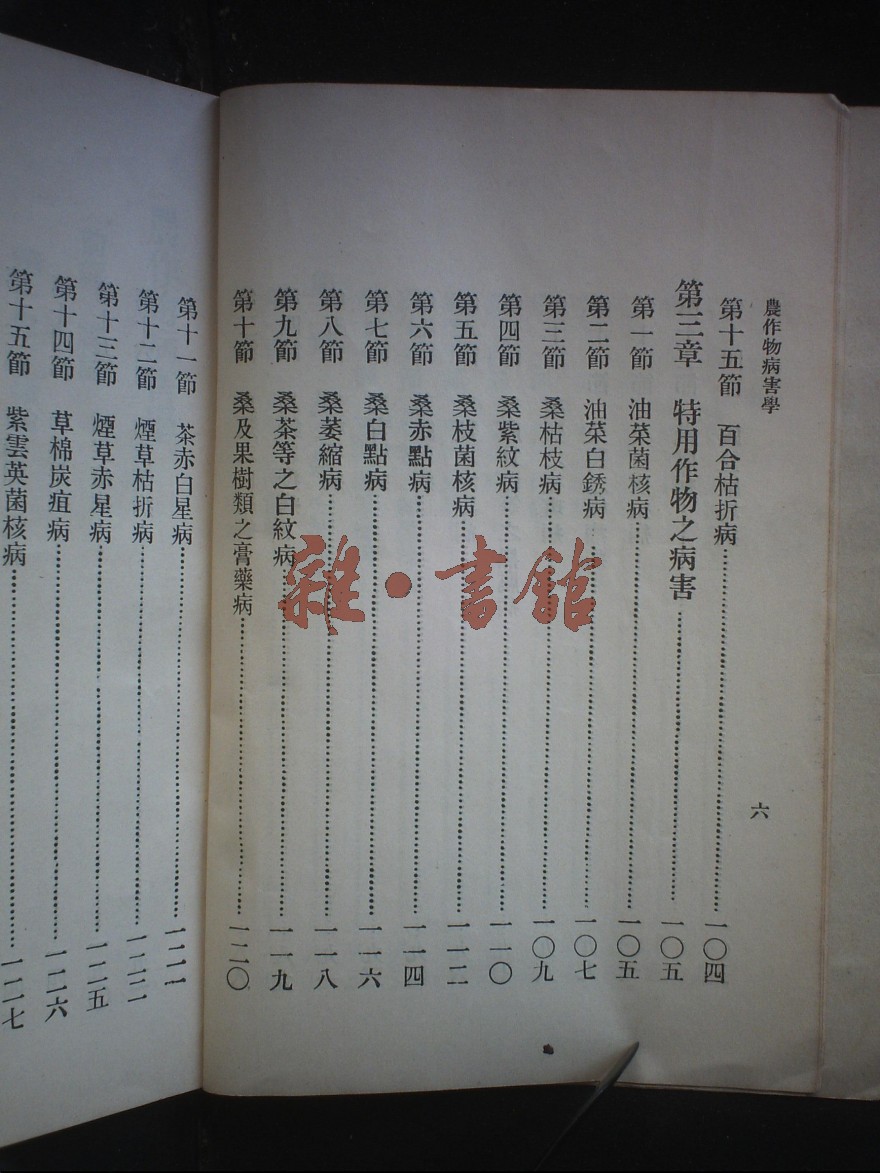 農作物病害學
六
第十五節 百合枯折病……一〇四
第三章 特用作物之病害……一〇五
第一節 油菜菌核病……一〇五
第二節 油菜白銹病……一〇七
第三節 桑枯枝病……一〇九
第四節 桑紫紋病……一一〇
第五節 桑枝菌核病……一一二
第六節 桑赤點病……一一四
第七節 桑白點病……一一六
第八節 桑萎縮病……一一八
第九節 桑茶等之白紋病……一一九
第十節 桑及果樹類之膏藥病……一二〇
第十一節 茶赤白星病……一二一
第十二節 煙草枯折病……一二三
第十三節 煙草赤星病……一二五
第十四節 草棉炭疽病……一二六
第十五節 紫雲英菌核病……一二七
雜·書館